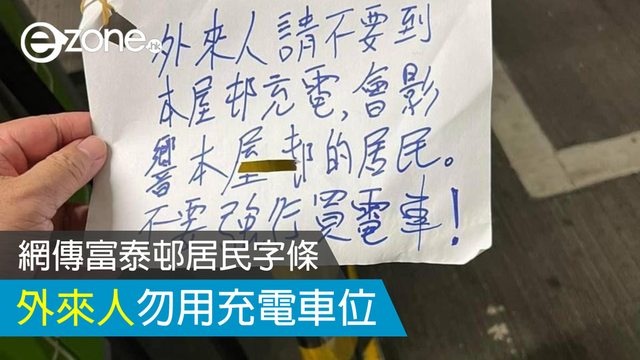 e-zone.hk
外來人請不要到
本屋邨充電,會影
響本屋邨的居民。
不要強行買電車!
網傳富泰邨居民字條
外來人勿用充電車位